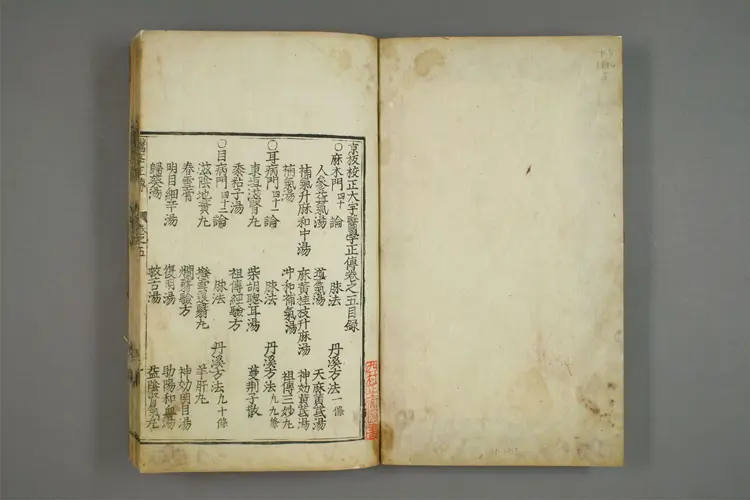 京板校正大字醫學正傳卷之五目録
○麻木門四十 論 脉法 丹溪方法一條
人參益氣湯 導氣湯 天麻黄芪湯
補氣升麻和中湯 麻黄桂枝升麻湯 神効黄芪湯
補氣湯 冲和補氣湯 祖傳三妙丸
○耳病門四十一 論 脉法 丹溪方法九條
東垣滋腎丸 柴胡聰耳湯 蔓荆子散
黍粘子湯 祖傳經驗方
○目病門四十二 論 脉法 丹溪方法九十條
滋陰地黄丸 撥雲退翳丸 羊肝丸
春雪膏 爛翳驗方 神効明目湯
明目細辛湯 復明湯 助陽和血湯
歸葵湯 救苦湯 益陰腎氣丸